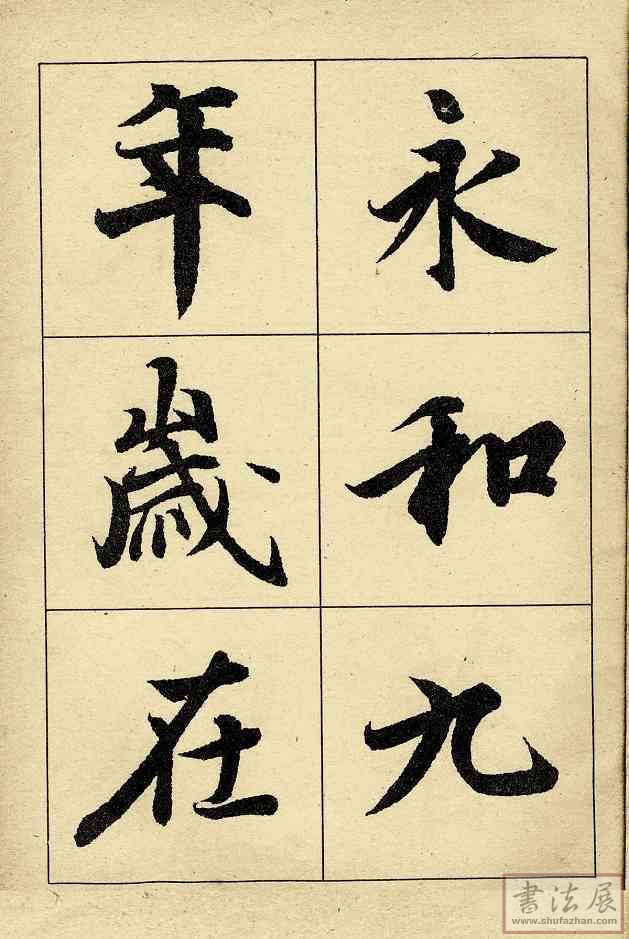 永和九
年歲在
書法展
www.shufazhan.com